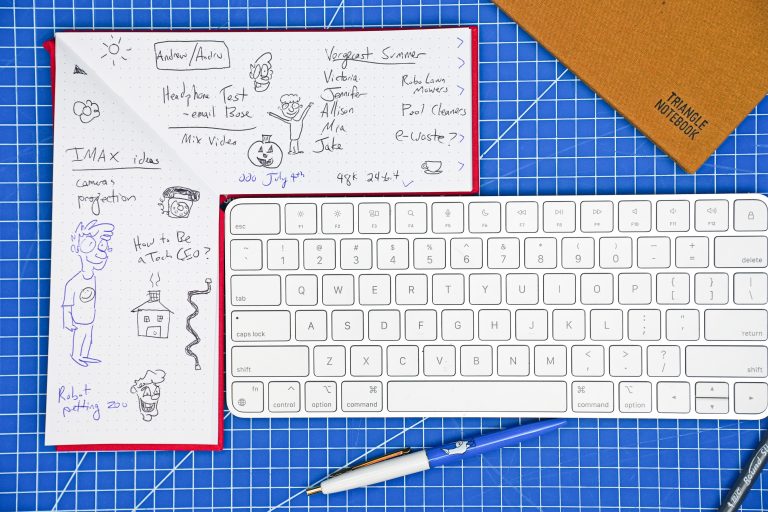 Andrew/Andru
Headphone Test
- email Bose
Mix Video
Vergecast Summer
Victoria
Jennifer
Allison
Mia
Jake
Robo Lawn
Mowers
Pool Cleaners
e-waste?
OOO July 4th
48k 24-bit
IMAX ideas
cameras
projection
How to Be
a Tech CEO?
Robot
petting zoo
TRIANGLE
NOTEBOOK
esc
F1
F2
F3
F4
F5
F6
F7
F8
F9
F10
F11
F12
~ `
! 1
@ 2
# 3
$ 4
% 5
^ 6
& 7
* 8
( 9
) 0
_ -
+ =
delete
tab
Q W E R T Y U I O P { [ } ] | \
caps lock
A S D F G H J K L : ; " '
return
shift
Z X C V B N M < , > . ? /
shift
fn
control
option
command
command
option